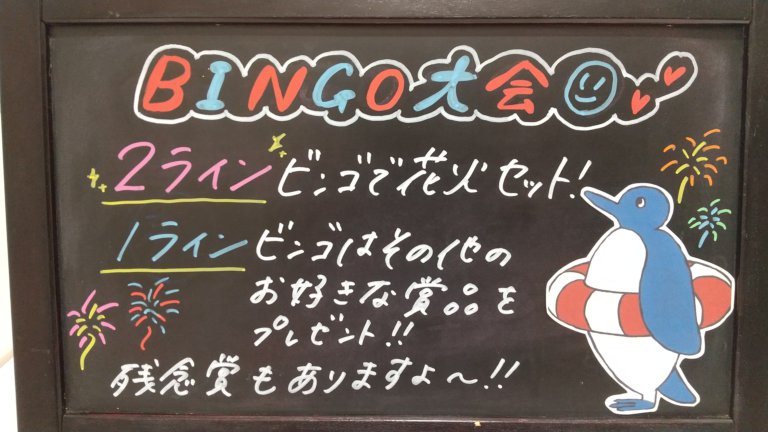 BINGO大会
2ラインビンゴで花火セット!
1ラインビンゴはその他の
お好きな賞品を
プレゼント!!
残念賞もありますよ〜!!